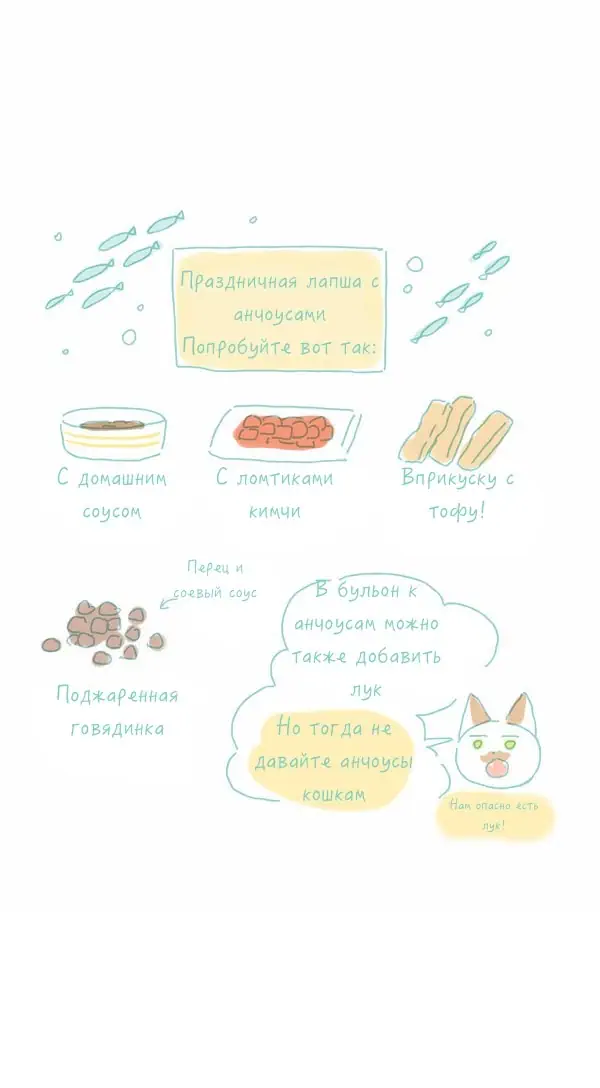 Праздничная лапша с
анчоусами
Попробуйте вот так:
С домашним
соусом
С ломтиками
кимчи
Вприкуску с
тофу!
Перец и
соевый соус
Поджаренная
говядинка
В бульон к
анчоусам можно
также добавить
лук
Но тогда не
давайте анчоусы
кошкам
Нам опасно есть
лук!